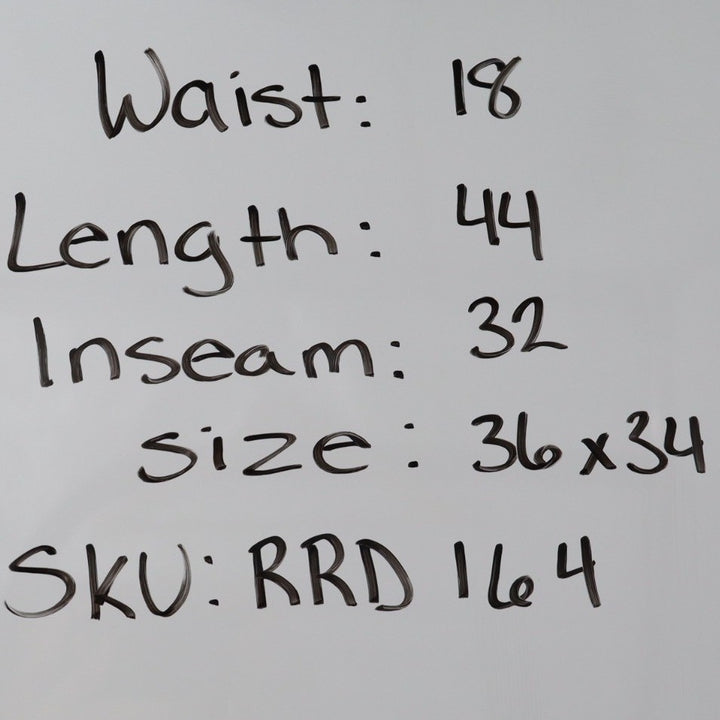 Waist: 18
Length: 44
Inseam: 32
size: 36x34
SKU: RRD 164